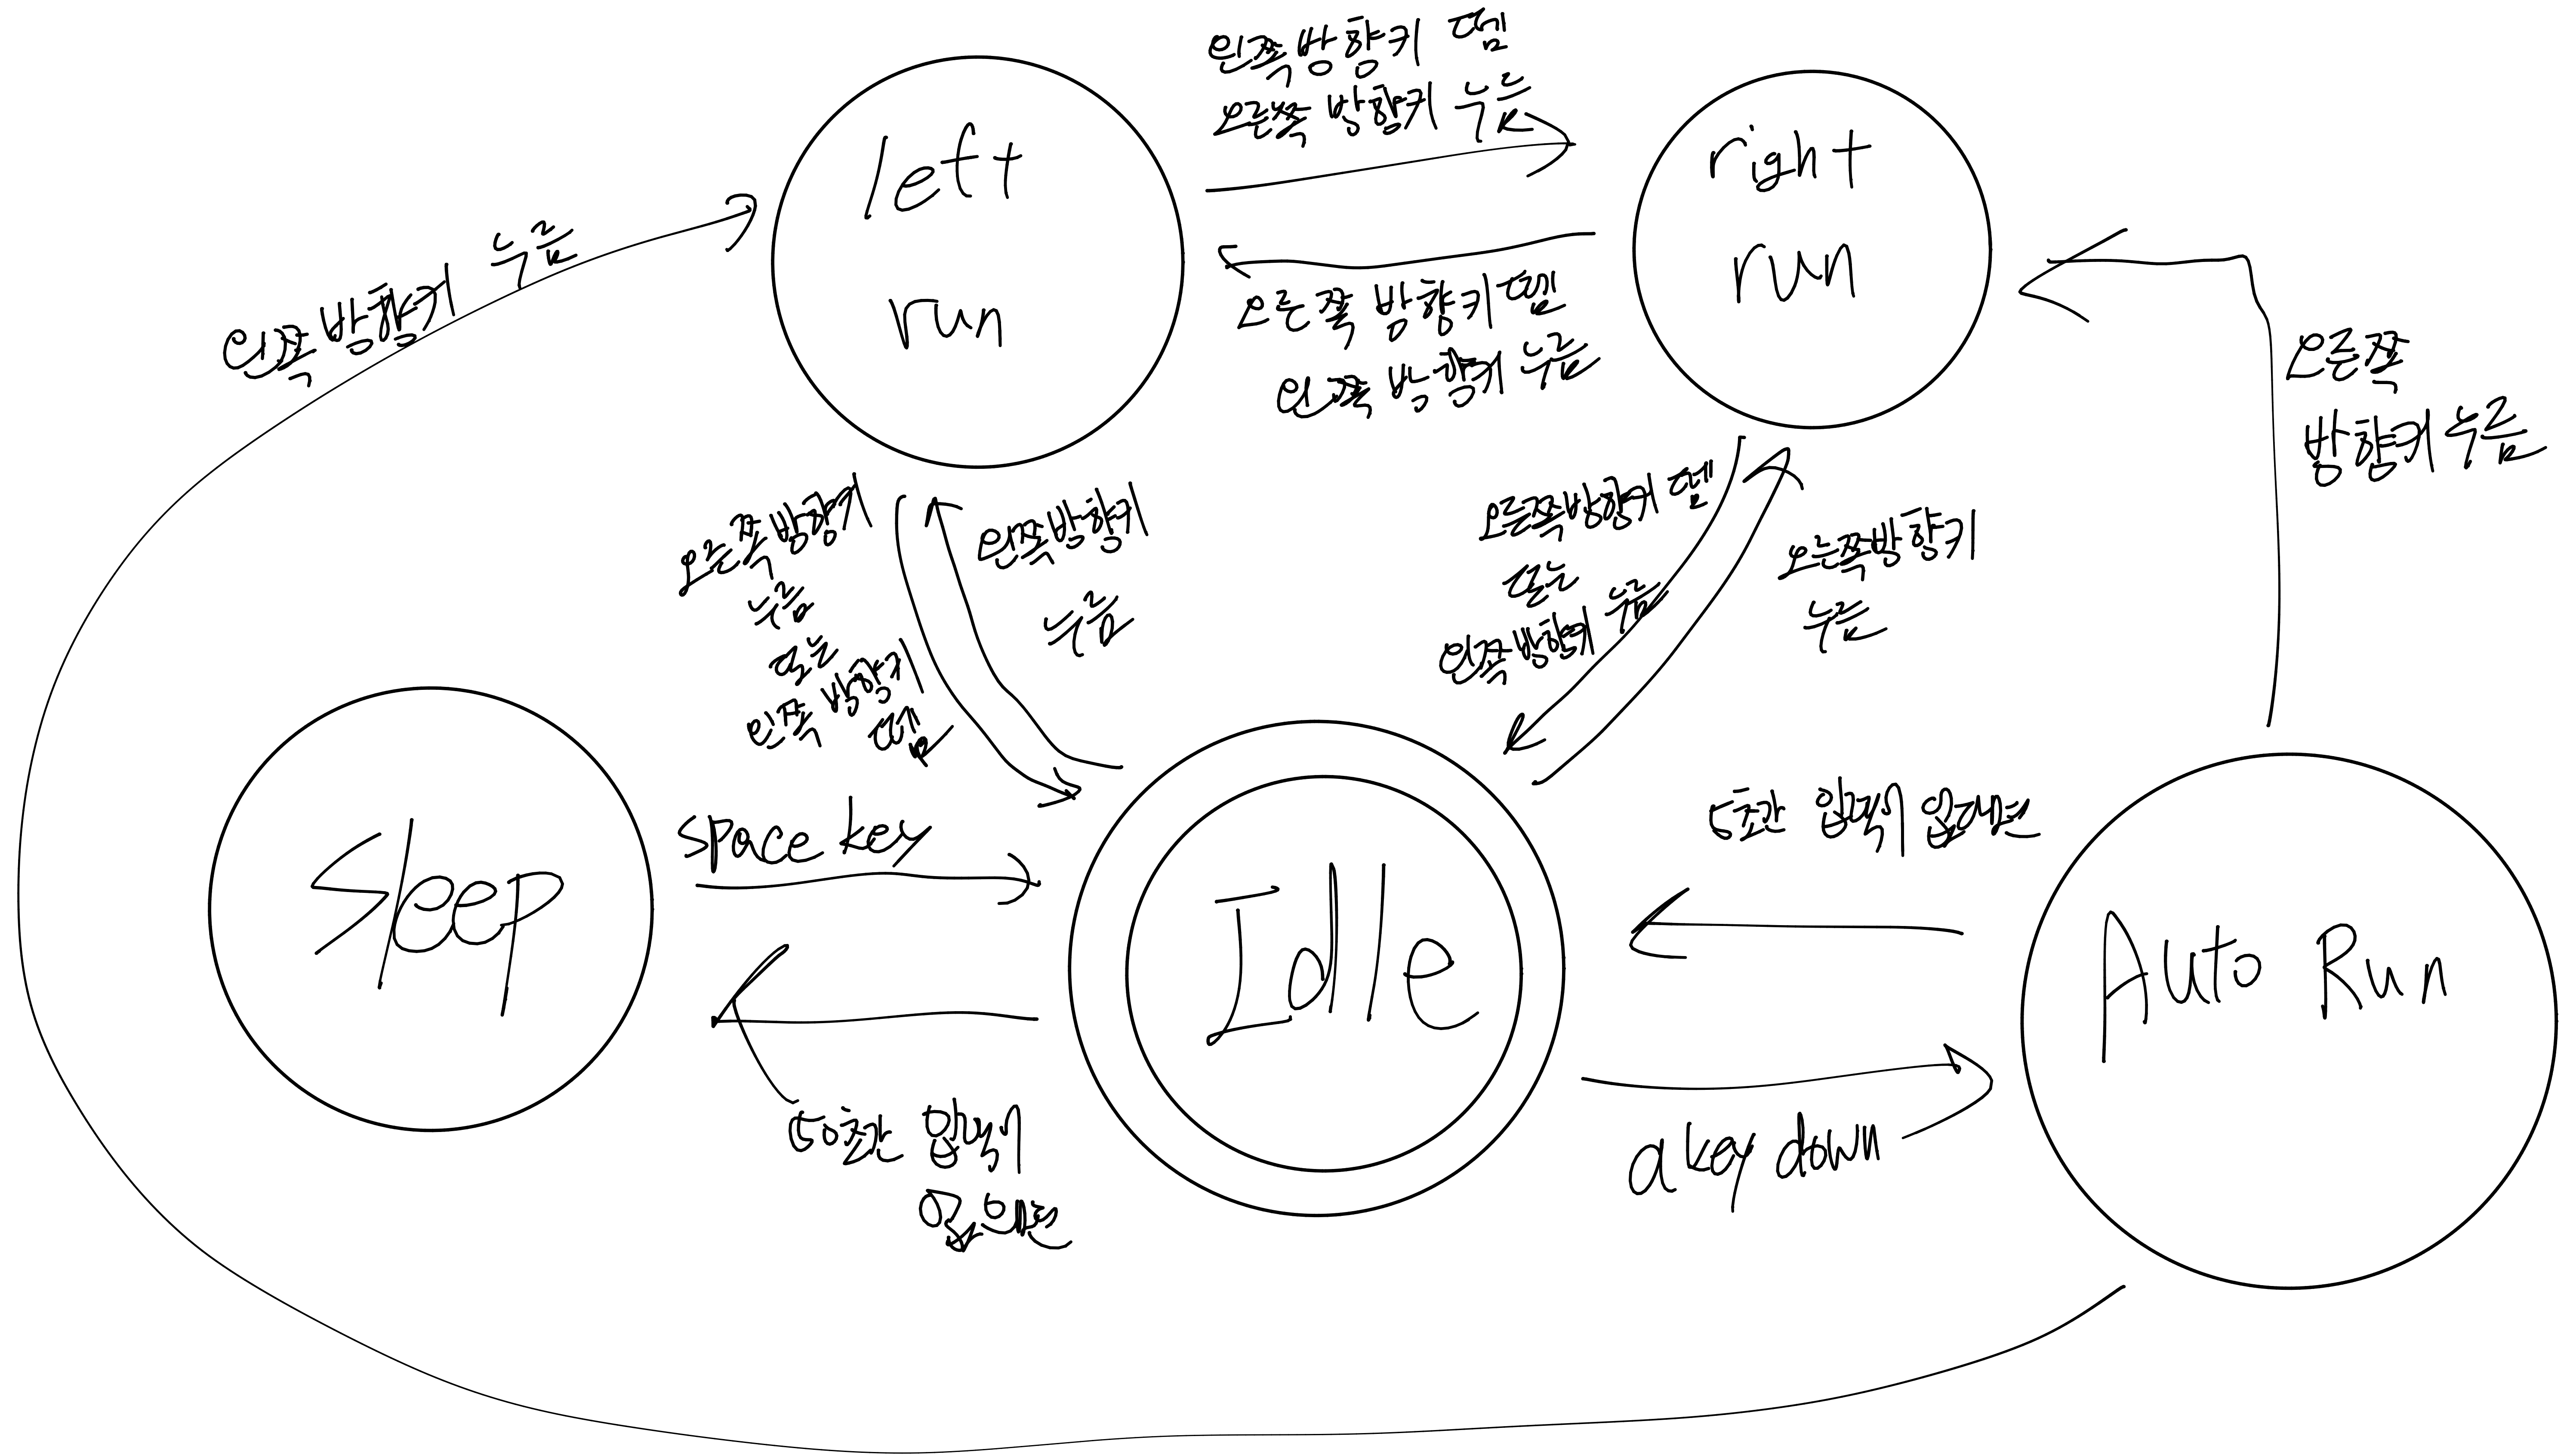 왼쪽 방향키 뗌
오른쪽 방향키 누름
left
run
right
run
왼쪽 방향키 누름
오른쪽 방향키 뗌
왼쪽 방향키 누름
오른쪽
방향키 누름
오른쪽 방향키
누름
또는
왼쪽 방향키
뗌
왼쪽방향키
누름
오른쪽방향키 뗌
또는
왼쪽방향키 누름
오른쪽방향키
누름
Sleep
space key
Idle
5초간 입력이 없다면
Auto Run
50초간 입력이
없으면
a key down